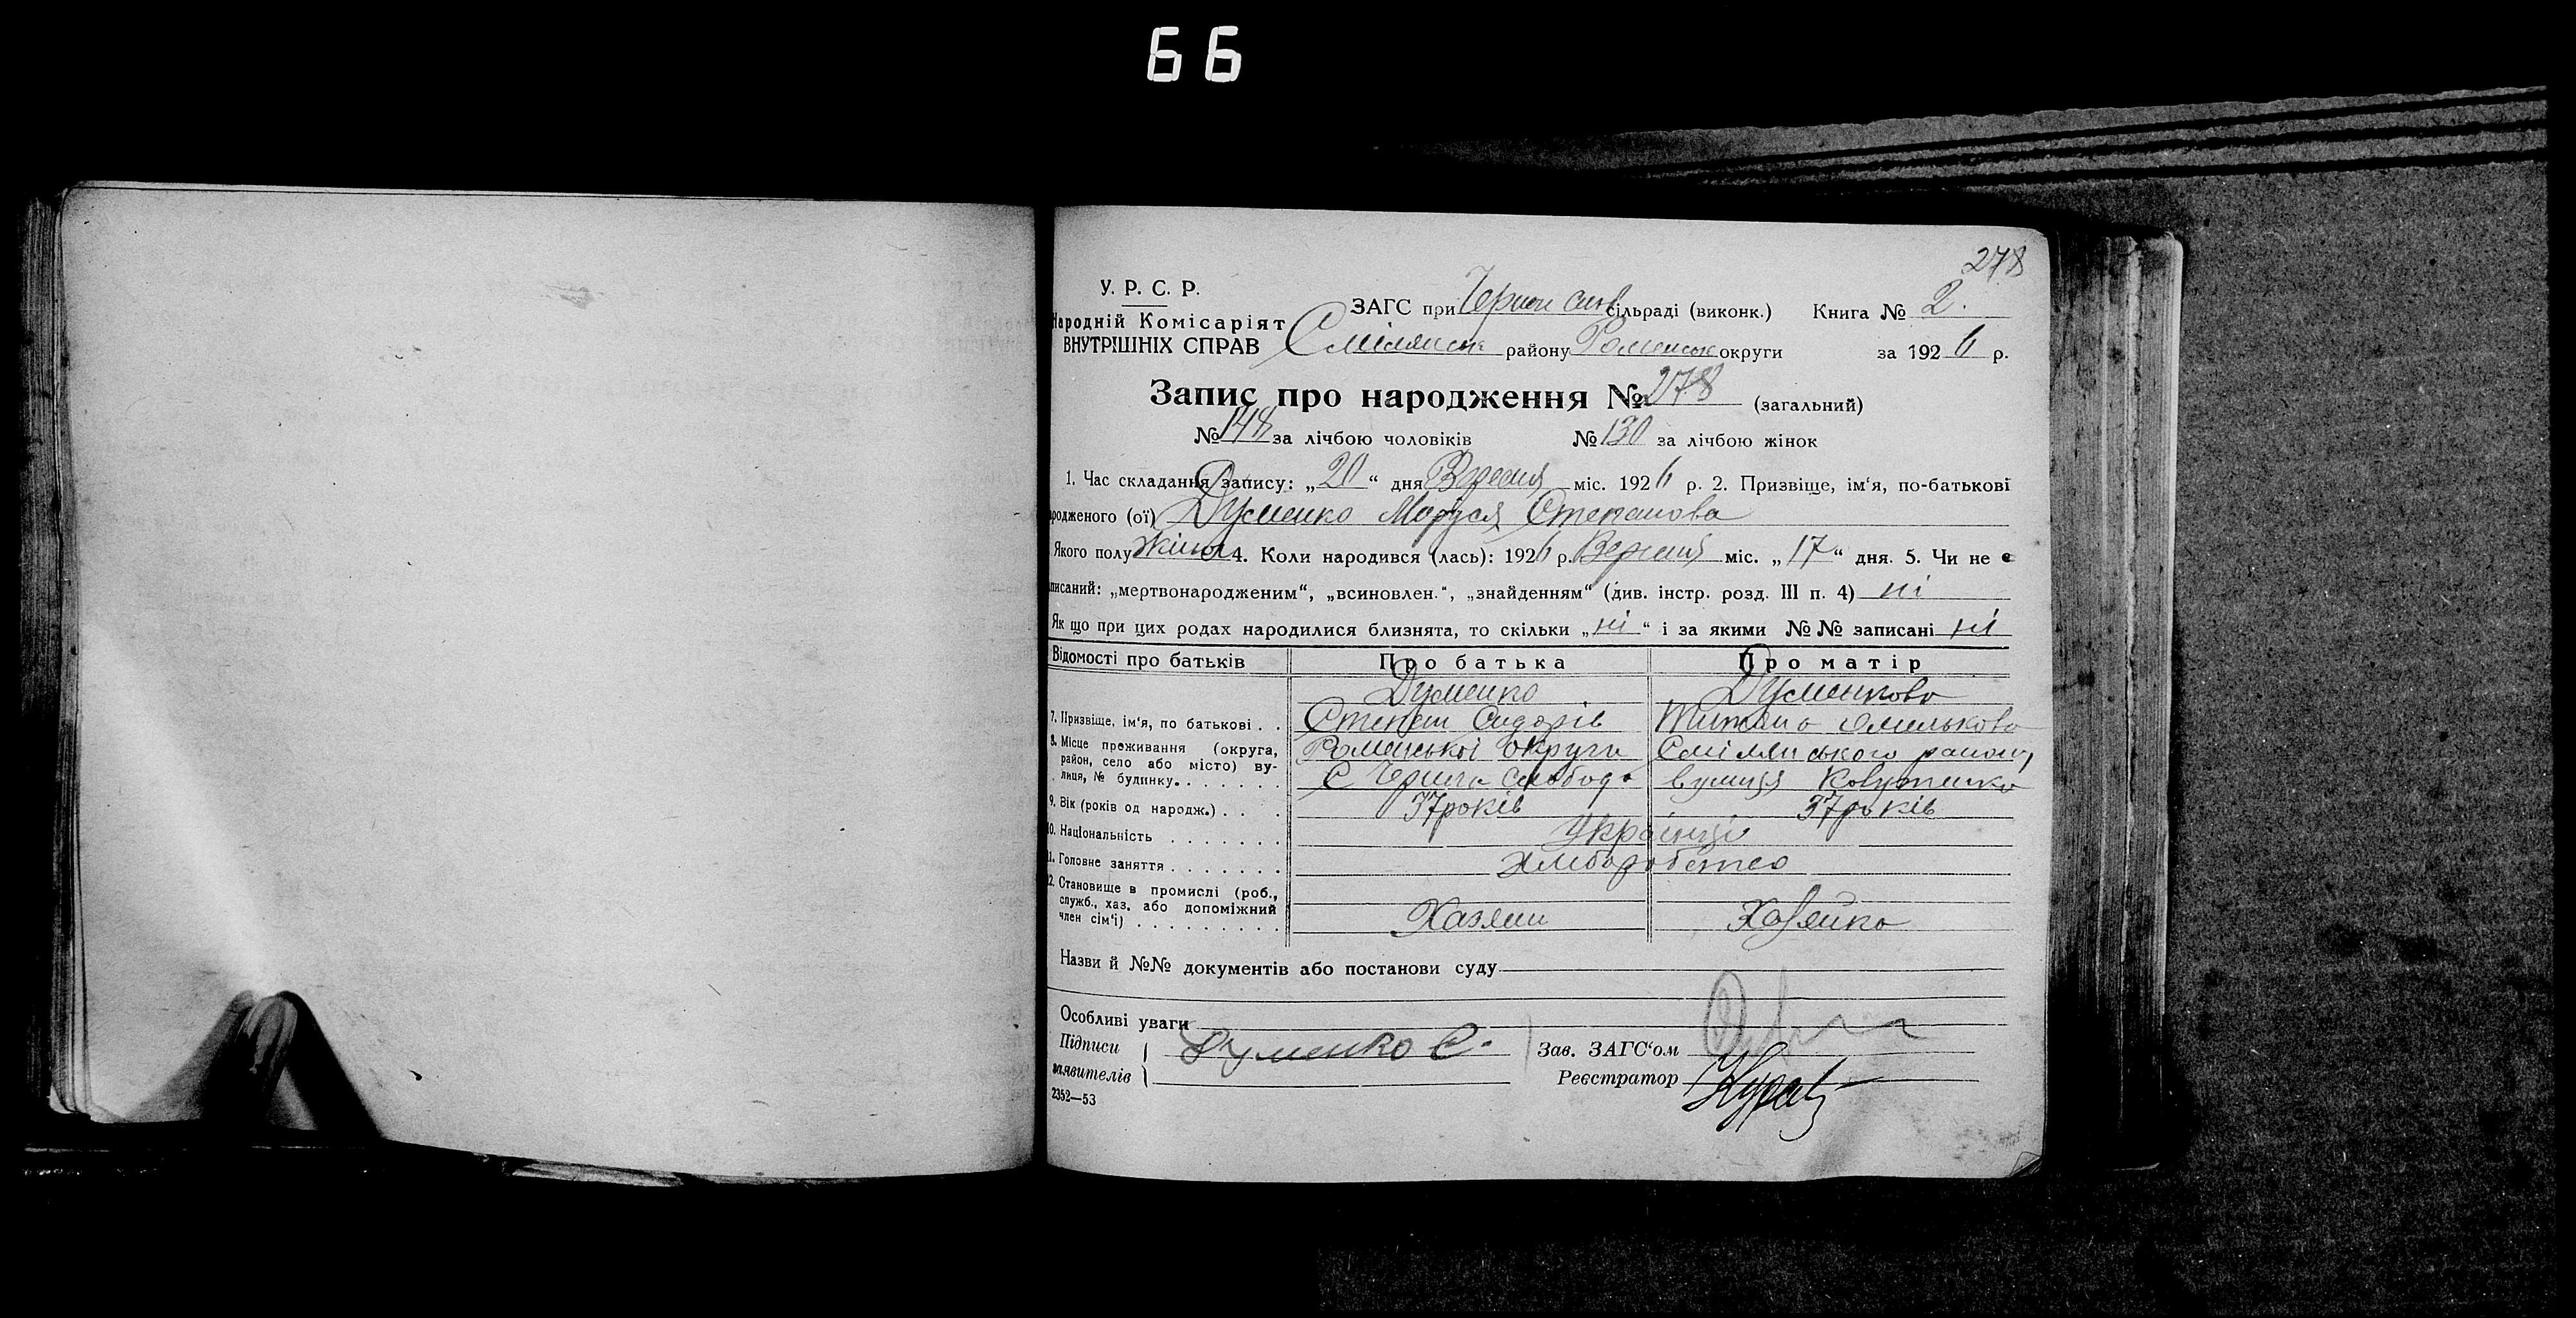 66
278
У. Р. С. Р.
Народній Комісаріят
ВНУТРІШНІХ СПРАВ
ЗАГС при Черчон слоб сільраді (виконк.) Книга № 2.
Смілянськ району Роменськ округи за 1926 р.
Запис про народження № 278 (загальний)
№ 148 за лічбою чоловіків № 130 за лічбою жінок
1. Час складання запису: „20“ дня Вересня міс. 1926 р. 2. Призвіще, ім‘я, по-батькові
родженого (ої) Думенко Маруся Степанова
Якого полу жіноч 4. Коли народився (лась): 1926 р. Вересня міс. „17“ дня. 5. Чи не є
писаний: „мертвонародженим“, „всиновлен.“, „знайденням“ (див. інстр. розд. III п. 4) ні
Як що при цих родах народилися близнята, то скільки „ні“ і за якими №№ записані ні
Відомості про батьків Про батька Про матір
Думенко Думенкова
7. Призвіще, ім‘я, по батькові . . Степан Сидорів Титяна Омелькова
8. Місце проживання (округа, район, село або місто) вулиця, № будинку. . . . . . . Роменської округи Смілянського району
С Черина Слобода вулиця
9. Вік (років од народж.) . . . 37 років 37 років
10. Національність . . . . . . . Українці
11. Головне заняття . . . . . . . Хліборобство
12. Становище в промислі (роб., служб., хаз. або допоміжний член сім‘ї) . . . . . . . . . Хазяин Хазяйка
Назви й №№ документів або постанови суду
Особливі уваги
Підписи Думенко С. Зав. ЗАГС‘ом
заявителів Реєстратор
2352—53